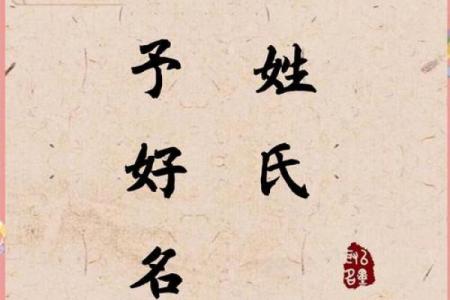 姓氏
予好名